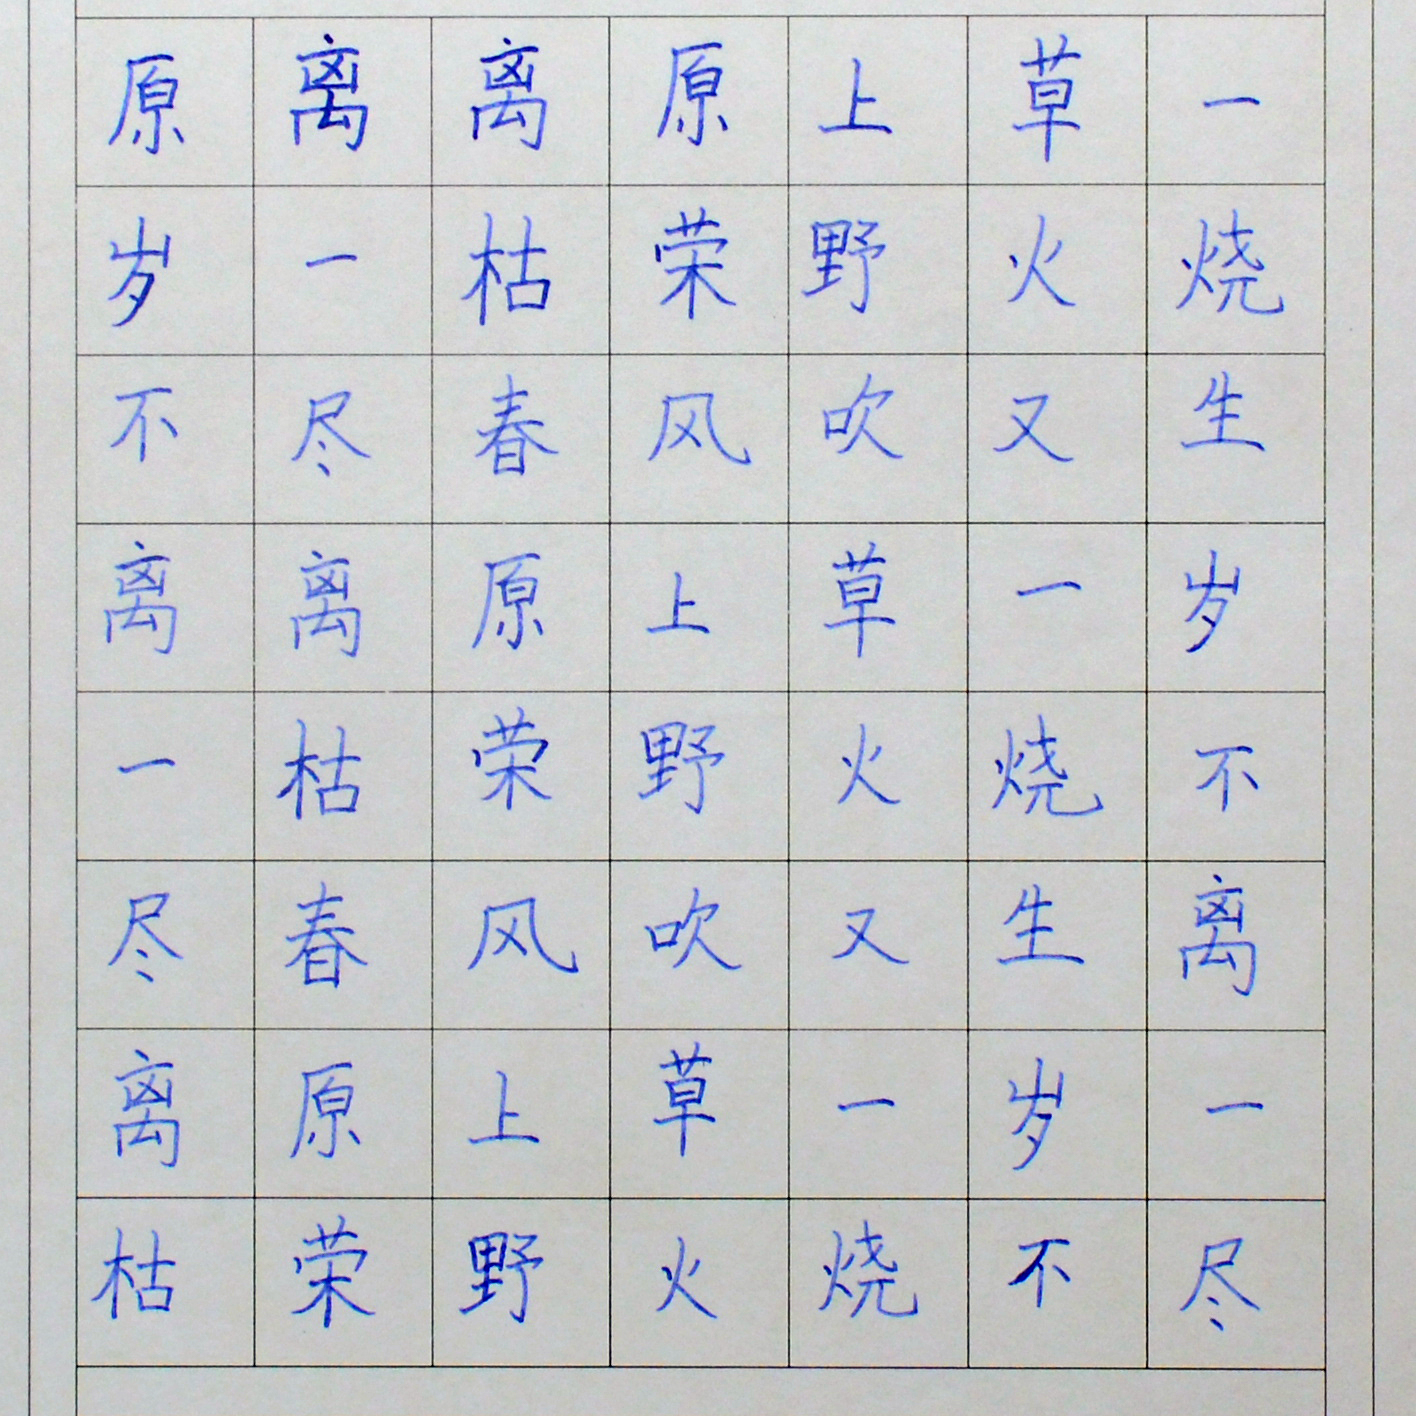 原离离原上草一
岁一枯荣野火烧
不尽春风吹又生
离离原上草一岁
一枯荣野火烧不
尽春风吹又生离
离原上草一岁一
枯荣野火烧不尽